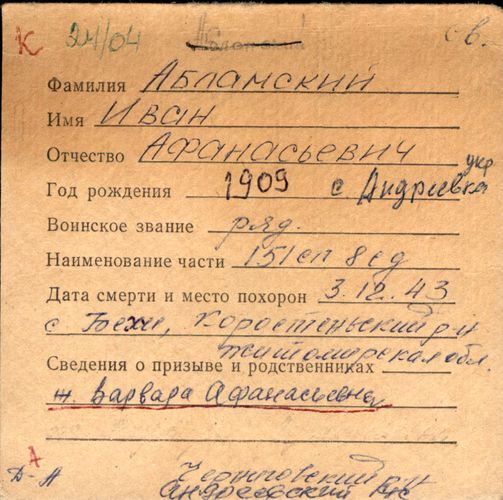 К 24/04 св.
Фамилия Абламский
Имя Иван
Отчество Афанасьевич укр
Год рождения 1909 с Андреевка
Воинское звание ряд.
Наименование части 151 сп 8 сд
Дата смерти и место похорон 3.12.43
с Бехи, Коростеньский р-н
Житомирская обл.
Сведения о призыве и родственниках
ж. Варвара Афанасьевна
А
Д-А Черниговский
Андреевский